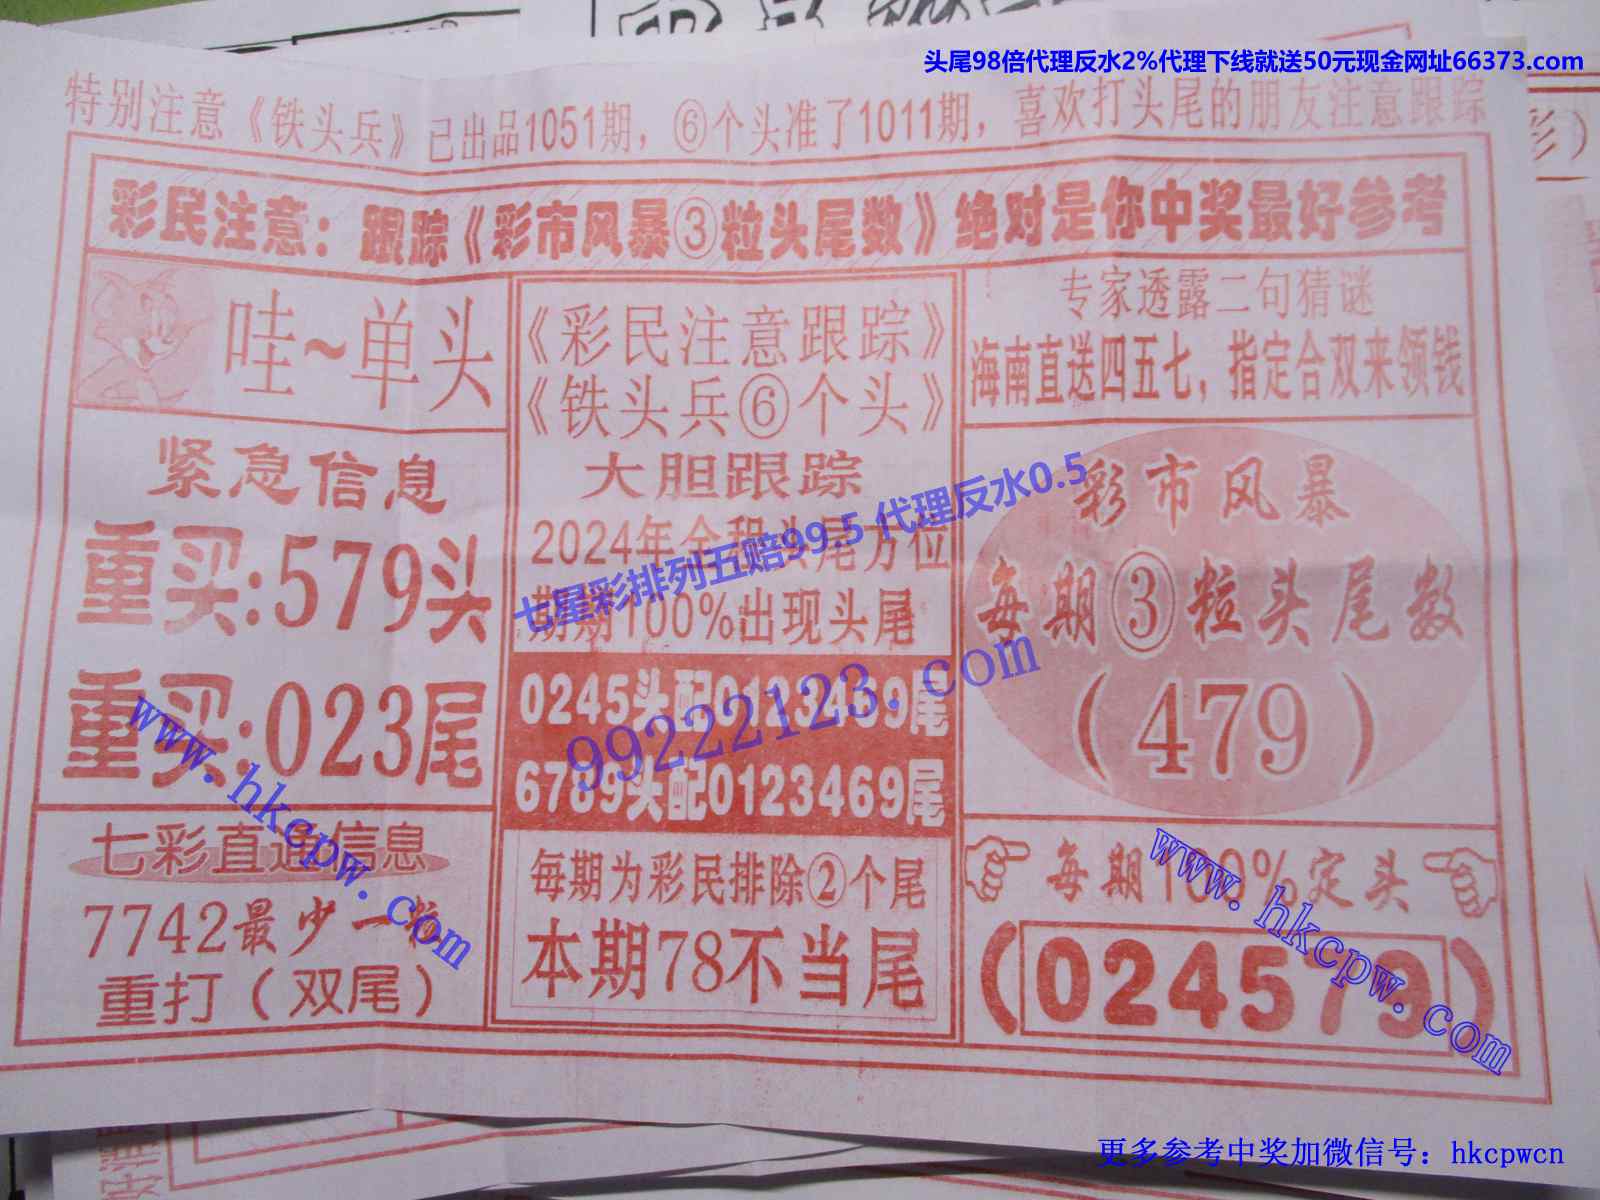 头尾98倍代理反水2%代理下线就送50元现金网址66373.com
特别注意《铁头兵》已出品1051期，⑥个头准了1011期，喜欢打头尾的朋友注意跟踪
彩）
彩民注意：跟踪《彩市风暴③粒头尾数》绝对是你中奖最好参考
哇~单头
紧急信息
重买:579头
重买:023尾
七彩直通信息
7742最少一粒
重打（双尾）
《彩民注意跟踪》
《铁头兵⑥个头》
大胆跟踪
2024年全程头尾方位
期期100%出现头尾
0245头配0123469尾
6789头配0123469尾
每期为彩民排除②个尾
本期78不当尾
专家透露二句猜谜
海南直送四五七，指定合双来领钱
彩市风暴
每期③粒头尾数
（479）
每期100%定头
（024579）
七星彩排列五赔99.5 代理反水0.5
99222123.com
www.hkcpw.com
www.hkcpw.com
更多参考中奖加微信号：hkcpwcn